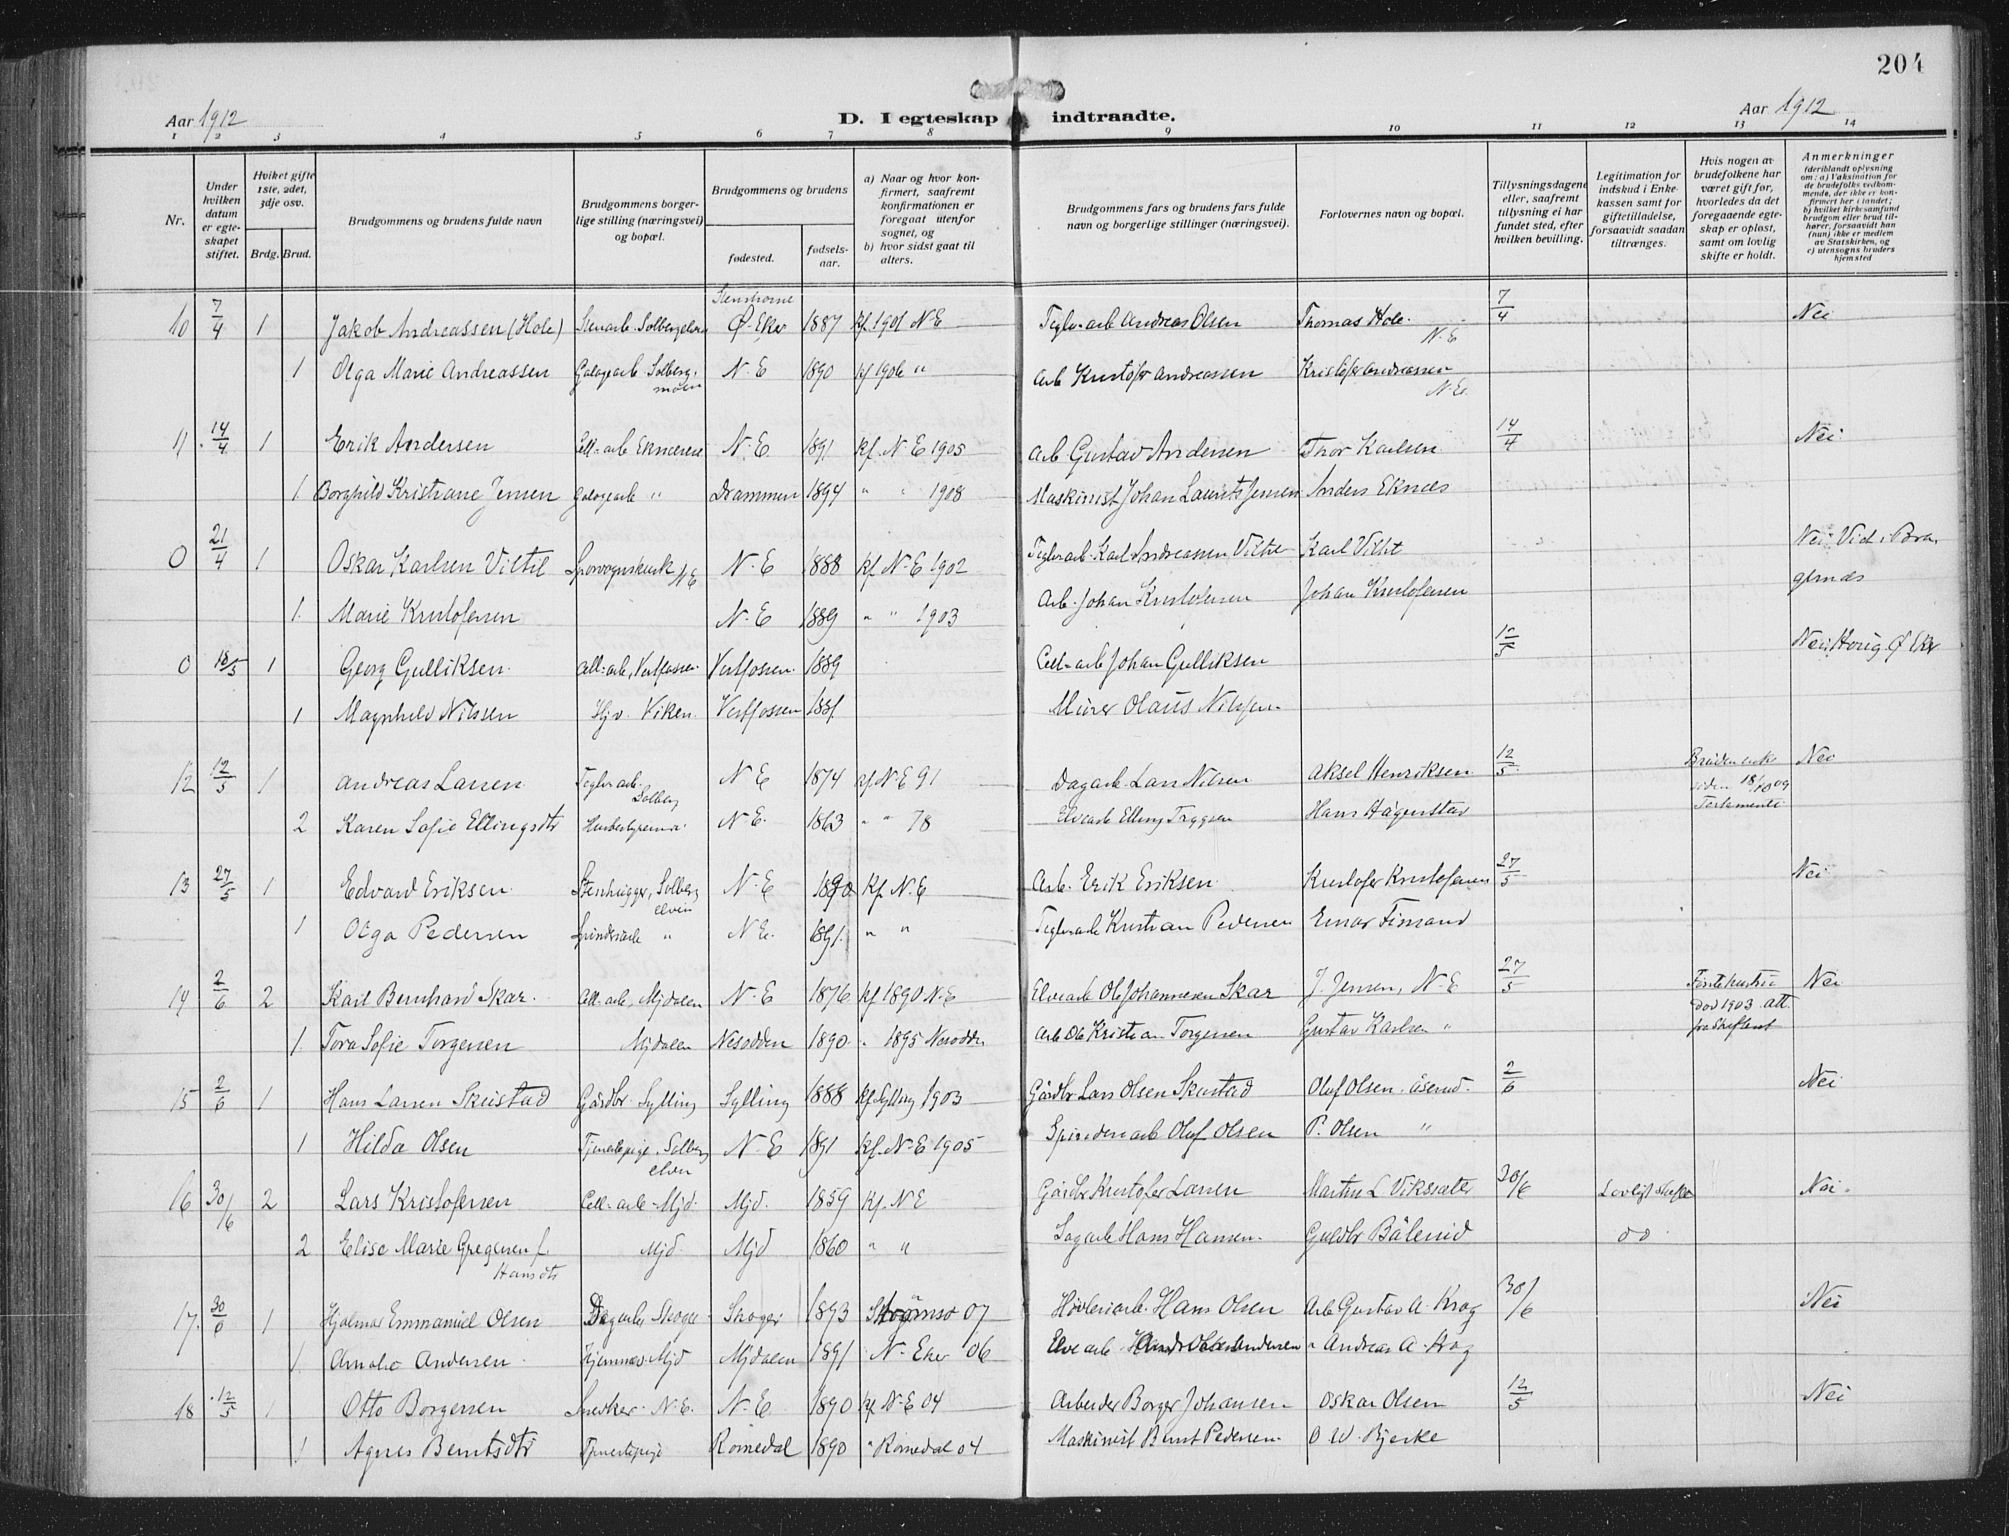 204
Aar 1912
D. I egteskap indtraadte.
Aar 1912
1 2 3 4 5 6 7 8 9 10 11 12 13 14
Nr.
Under hvilken datum er egteskapet stiftet.
Hvilket gifte 1ste, 2det, 3dje osv.
Brdg. Brud.
Brudgommens og brudens fulde navn
Brudgommens borgerlige stilling (næringsvei) og bopæl.
Brudgommens og brudens
fødested.
fødselsaar.
a) Naar og hvor konfirmert, saafremt konfirmationen er foregaat utenfor sognet, og
b) hvor sidst gaat til alters.
Brudgommens fars og brudens fars fulde navn og borgerlige stillinger (næringsvei).
Forlovernes navn og bopæl.
Tillysningsdagene eller, saafremt tillysning ei har fundet sted, efter hvilken bevilling.
Legitimation for indskud i Enkekassen samt for giftetilladelse, forsaavidt saadan tiltrænges.
Hvis nogen av brudefolkene har været gift før, hvorledes da det foregaaende egteskap er opløst, samt om lovlig skifte er holdt.
Anmerkninger (deriblandt oplysning om: a) Vaksination for de brudefolks vedkommende, der ikke er konfirmert her i landet; b) hvilket kirkesamfund brudgom eller brud tilhører, forsaavidt han (hun) ikke er medlem av Statskirken, og c) utensogns bruders hjemsted
10 7/4 1 Jakob Andreassen (Hole) Ø-Eker 1887 kf 1901 N-E Teglv-arb Andreas Olsen Thomas Hole. N.E 7/4 Nei
1 Olga Marie Andreassen Galogearb. Solbergmoen N-E 1890 kf 1906 " Arb Kristofer Andreassen Kristofer Andreassen N-E.
11 14/4 1 Erik Andersen Cell-arb N-E. 1891 kf. N-E 1905 Arb Gustav Andersen Thor Karlsen 14/4 Nei
1 Borghild Kristiane Jensen Galogearb " Drammen 1894 " " 1908 Maskinist Johan Laurits Jensen Anders Eknæs
0 21/4 1 Oskar Karlsen Viltil N-E 1888 kf. N-E 1902 Teglv.arb. Karl Andreassen Karl Nei
1. Marie Kristofersen N-E 1889 " " 1903 Arb. Johan Kristofersen Johan Kristofersen
0 18/5 1 Georg Gulliksen Cell-arb, Vestfossen Vestfossen 1889 Cell-arb Johan Gulliksen Nei, Ø Eker
1 Magnhild Nilsen Hjv. Viken Vestfossen Murer Olaus Nilsen
12 12/5 1 Andreas Larsen Teglv.arb. Solberg N-E 1874 kf. N-E 91 Dagarb. Lars Nilsen Aksel Henriksen 12/5 siden 18/10 09 Testamente Nei
2 Karen Sofie Ellingsdtr Husbestyrerinde N-E. 1863 " " 78 Elvearb Elling Trygsen Hans Hagenstad
13 27/5 1 Edvard Eriksen Stenhugger, Solbergelven N-E 1890 kf. N-E Arb. Erik Eriksen Kristofer Kristofersen 27/5 Nei
1 Olga Pedersen " N-E. 1891 " " Teglv.arb Kristian Pedersen Einar
14 2/6 2 Karl Bernhard Skar. Cell-arb, Mjdalen N-E 1876 kf 1890 N-E Elvearb Ole Johannesen Skar J. Jensen, N-E 27/5 Første hustru død 1903. Att. fra Skifteret Nei
1. Tora Sofie Torgersen Mjdalen Nesodden 1890 " 1895 Nesodden Arb Ole Kristian Torgersen Gustav Karlsen "
15 2/6 1 Hans Larsen Skustad Gårdbr. Sylling Sylling 1888 kf Sylling 1903 Gårdbr Lars Olsen Skustad Oluf Olsen Åserud 2/6 Nei
1 Hilda Olsen Tjenestepige, Solbergelven N-E 1891 kf. N-E 1905 Spinderiarb Oluf Olsen P. Olsen "
16 30/6 2 Lars Kristofersen Cell-arb Mjd. Mjd. 1859 kf. N-E Gårdbr Kristofer Larsen Martin L Vikssæter 30/6 Lovligt skifte Nei
2 Elise Marie Gregersen f. Hansdtr Mjd Mjd 1860 " " Sagarb Hans Hansen Gaardbr do
17. 30/6 1 Hjalmar Emmanuel Olsen Dagarb, Skoger Skoger 1893 Strømsø 07 Høvleriarb. Hans Olsen Arb Gustav A. Krog 30/6 Nei
1. Andersen Hjemmev. Mjd Mjdalen 1891 N-Eker 06 Elvearb " Andreas A. Krog
18 12/5 1 Otto Borgersen Snedker N-E. N-E 1890 kf N-E 04 Arbeider Borger Johansen Oskar Olsen 12/5 Nei
1 Agnes Berntsdtr Tjenestepige Romedal 1890 " Romedal 04 Maskinist Bernt Pedersen O. W. Bjerke